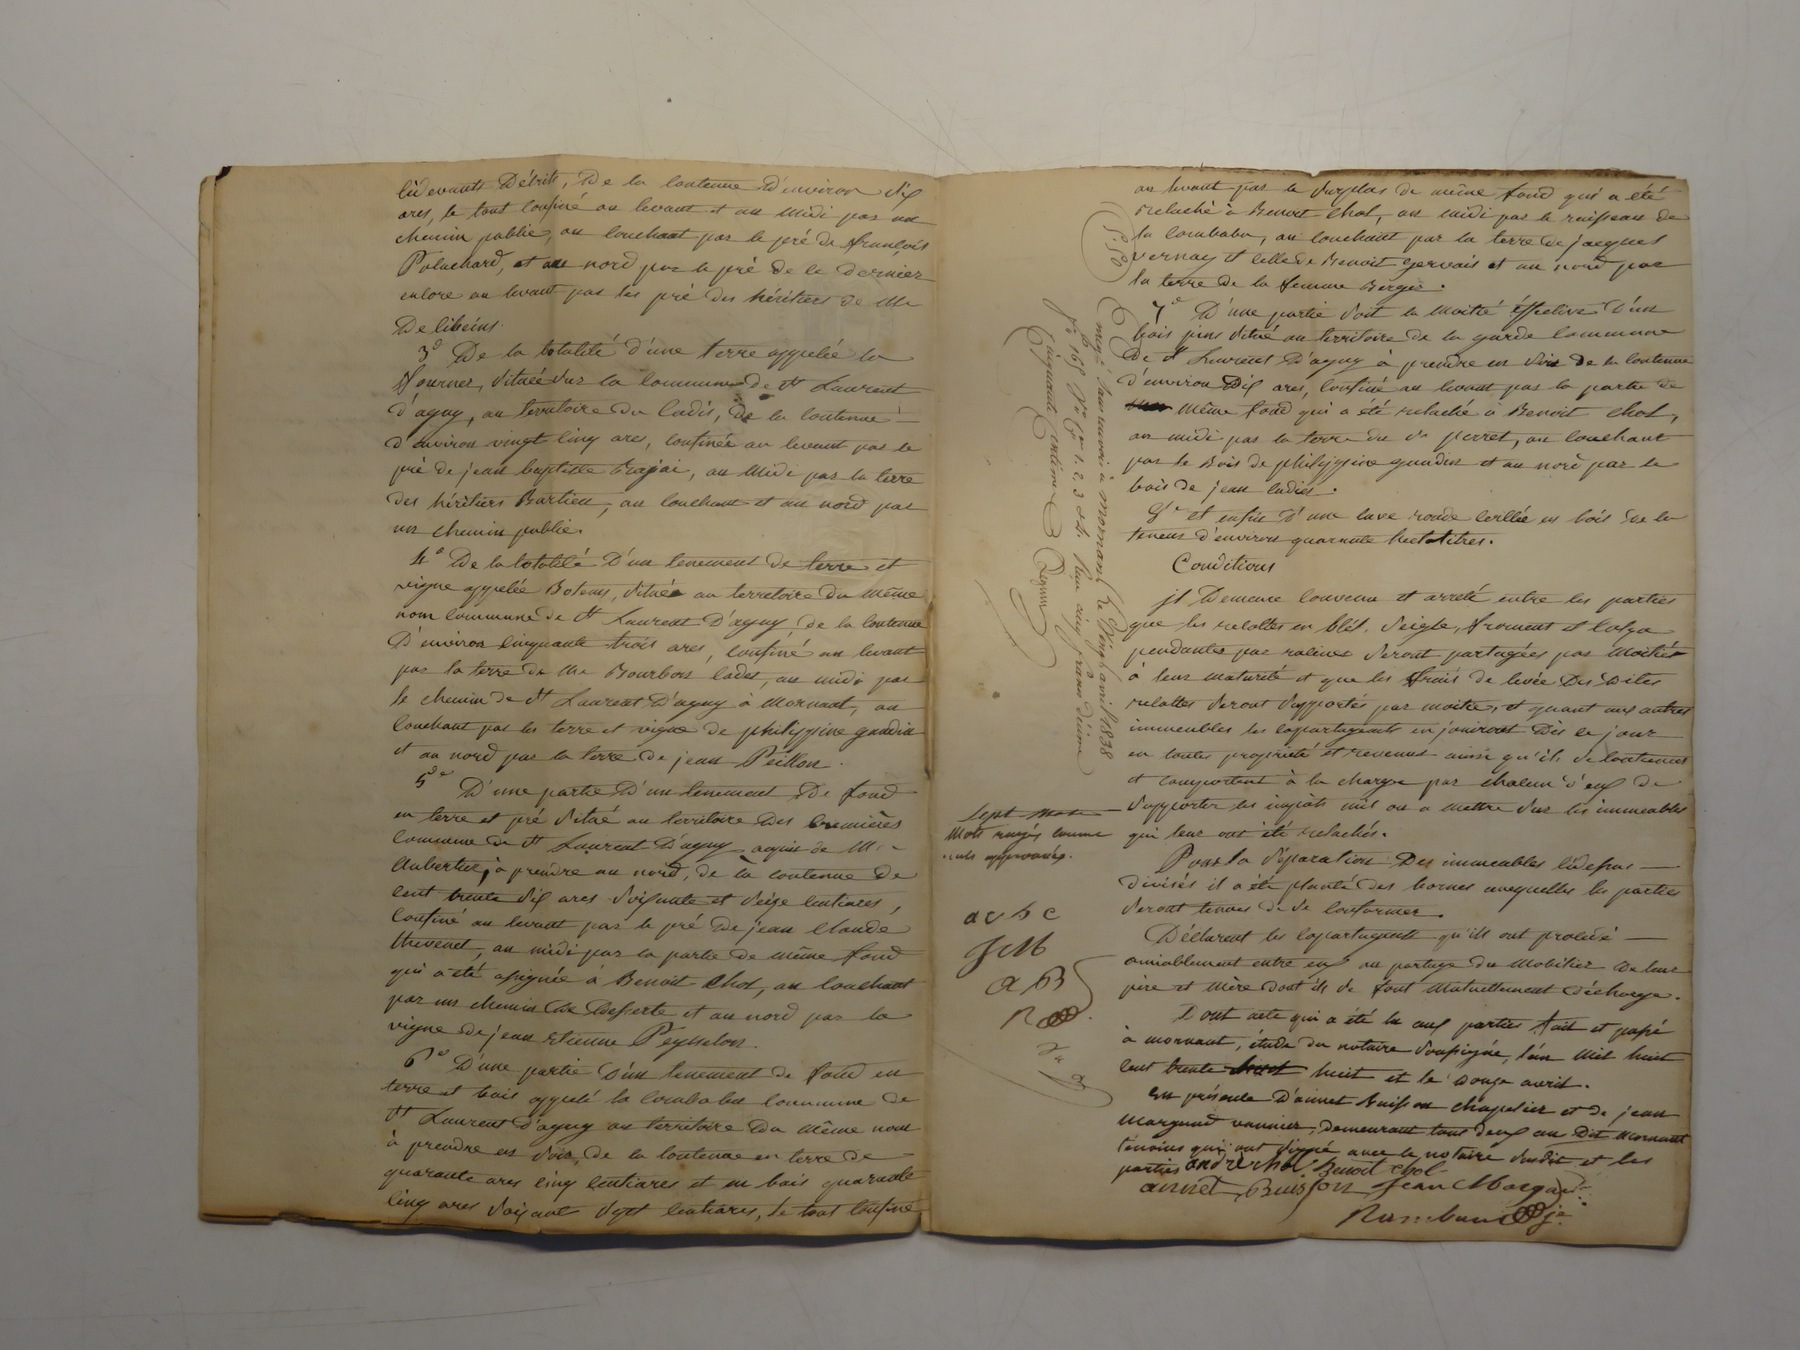 cidevants Décrits, De la contenue D'environ dix
ares, le tout confiné au levant et au midi par un
chemin public, au couchant par le pré de françois
Poluchard, et au nord par le pré de ce dernier
encore au levant par les pré des héritiers de Mr
De libeins.
3° De la totalité d'une terre appelée la
située sur la commune de St Laurent
d'agny, au territoire du Ladis, De la contenue
d'environ vingt cinq ares, confinée au levant par le
pré de jean baptiste au midi par la terre
des héritiers Bartieu, au couchant et au nord par
un chemin public.
4° De la totalité D'un tenement de terre et
vigne appelée Botens, située au territoire du même
nom commune de St Laurent D'agny, De la contenue
D'environ cinquante trois ares, confiné au levant
par la terre de Mr Bourbon cadet, au midi par
le chemin de St Laurent D'agny à Mornant, au
couchant par les terre et vigne de philippine gaudin
et au nord par la terre de jean Peillon.
5° D'une partie D'un tenement De fond
en terre et pré situé au territoire Des Cremières
commune de St Laurent D'agny acquis de Mr
à prendre au nord, de la contenue De
cent trente dix ares soixante et seize centiares,
confiné au levant par le pré De jean claude
thevenet, au midi par la partie de même fond
qui a été assignée à Benoit Chol, au couchant
par un chemin De Desserte et au nord par la
vigne de jean Etienne Peysselon.
6° D'une partie D'un tenement de fond en
terre et bois appelé la Combabu commune de
St Laurent D'agny au territoire Du même nom
à prendre en soir, de la contenue en terre de
quarante ares cinq centiares et en bois quarante
cinq ares soixante sept centiares, le tout confiné
au levant par le surplus de même fond qui a été
relaché à Benoit Chol, au midi par le ruisseau de
la Combabu, au couchant par la terre de jacques
vernay et celle de Benoit gervais et au nord par
la terre de la femme Berger.
7° D'une partie soit la moitié éffective D'un
bois pins situé au territoire de la garde commune
De St Laurent D'agny à prendre en soir de la contenue
d'environ Dix ares, confiné au levant par la partie de
même fond qui a été relaché à Benoit Chol,
au midi par la terre du Sr perret, au couchant
par le Bois de philippine gaudin et au nord par le
bois de jean
et enfin D'une cuve ronde cerclée en bois De la
teneur d'environ quarante hectolitres.
Conditions
il Demeure convenu et arrêté entre les parties
que les recoltes en blé, seigle, froment et colza
pendantes par racines seront partagées par moitiés
à leur maturité et que les frais de levée Des Dites
recoltes seront supportés par moitié, et quant aux autres
immeubles les copartageants en jouiront Dès ce jour
en toutes propriété et revenus ainsi qu'ils se contiennent
et comportent à la charge par chacun d'eux de
supporter les impôts mis ou a mettre sur les immeubles
qui leur ont été relachés.
Pour la séparation Des immeubles cidessus
divisés il a été planté des bornes auxquelles les parties
seront tenues de se conformer.
Déclarent les copartageants qu'ils ont procédé
amiablement entre eux au partage du Mobilier De leur
père et mère dont ils se font mutuellement décharge.
Dont acte qui a été lu aux parties fait et passé
à mornant, étude du notaire soussigné, l'an Mil huit
cent trente huit et le Douze avril.
En présence D'annet Buisson chapelier et de jean
Margand vannier, demeurant tous deux au Dit Mornant
témoins qui ont signé avec le notaire susdit et les
parties andré chol Benoit chol
annet Buisson Jean Margand
Rambaud
Enregé sans renvoi à mornant le vingt avril 1838
fo 168 Vo Ces 1. 2. 3 et 4. Reçu cinq francs décime
cinquante centimes
Sept mots
Mots rayés comme
nuls approuvés.
a c b c
J M
a B
R